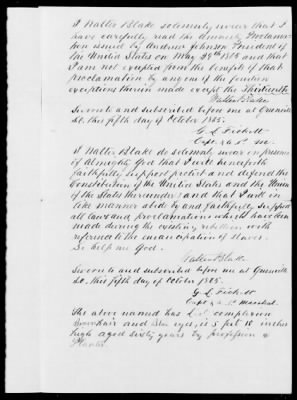 I Walter Blake solemnly swear that I
have carefully read the amnesty Proclama-
tion issued by Andrew Johnson President of
the United States on May 29th 1865 and that
I am not excepted from the benefits of that
proclamation by any one of the fourteen
exceptions therein made except the Thirteenth
Walter Blake
Sworn to and subscribed before me at Greenville
S.C. this fifth day of October 1865.
G. L. Fickett
Capt &
I Walter Blake do solemnly swear in presence
of Almighty God that I will henceforth
faithfully support protect and defend the
Constitution of the United States and the Union
of the States thereunder and that I will in
like manner abide by and faithfully support
all laws and proclamations which have been
made during the existing rebellion with
reference to the emancipation of slaves.
So help me God.
Walter Blake
Sworn to and subscribed before me at Greenville
S.C. this fifth day of October 1865.
G. L. Fickett
Capt & Marshal
The above named has complexion
hair and eyes, is 5 feet 10 inches
high aged sixty years by profession a
Planter